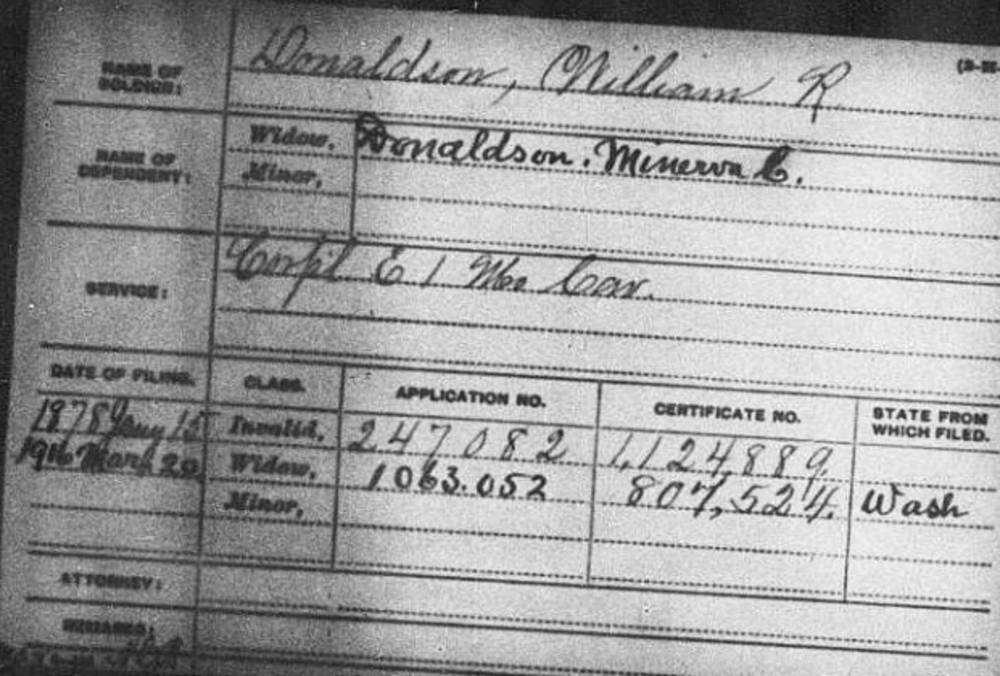 NAME OF SOLDIER: Donaldson, William R
NAME OF DEPENDENT: Widow, Donaldson. Minerva C.
Minor,
SERVICE: Corpl E 1 Mo Cav.
DATE OF FILING. CLASS. APPLICATION NO. CERTIFICATE NO. STATE FROM WHICH FILED.
1878 Jany 15 Invalid, 247082 1,124,889.
1916 Mar 20 Widow, 1063.052 807,524. Wash
Minor,
ATTORNEY:
REMARKS: